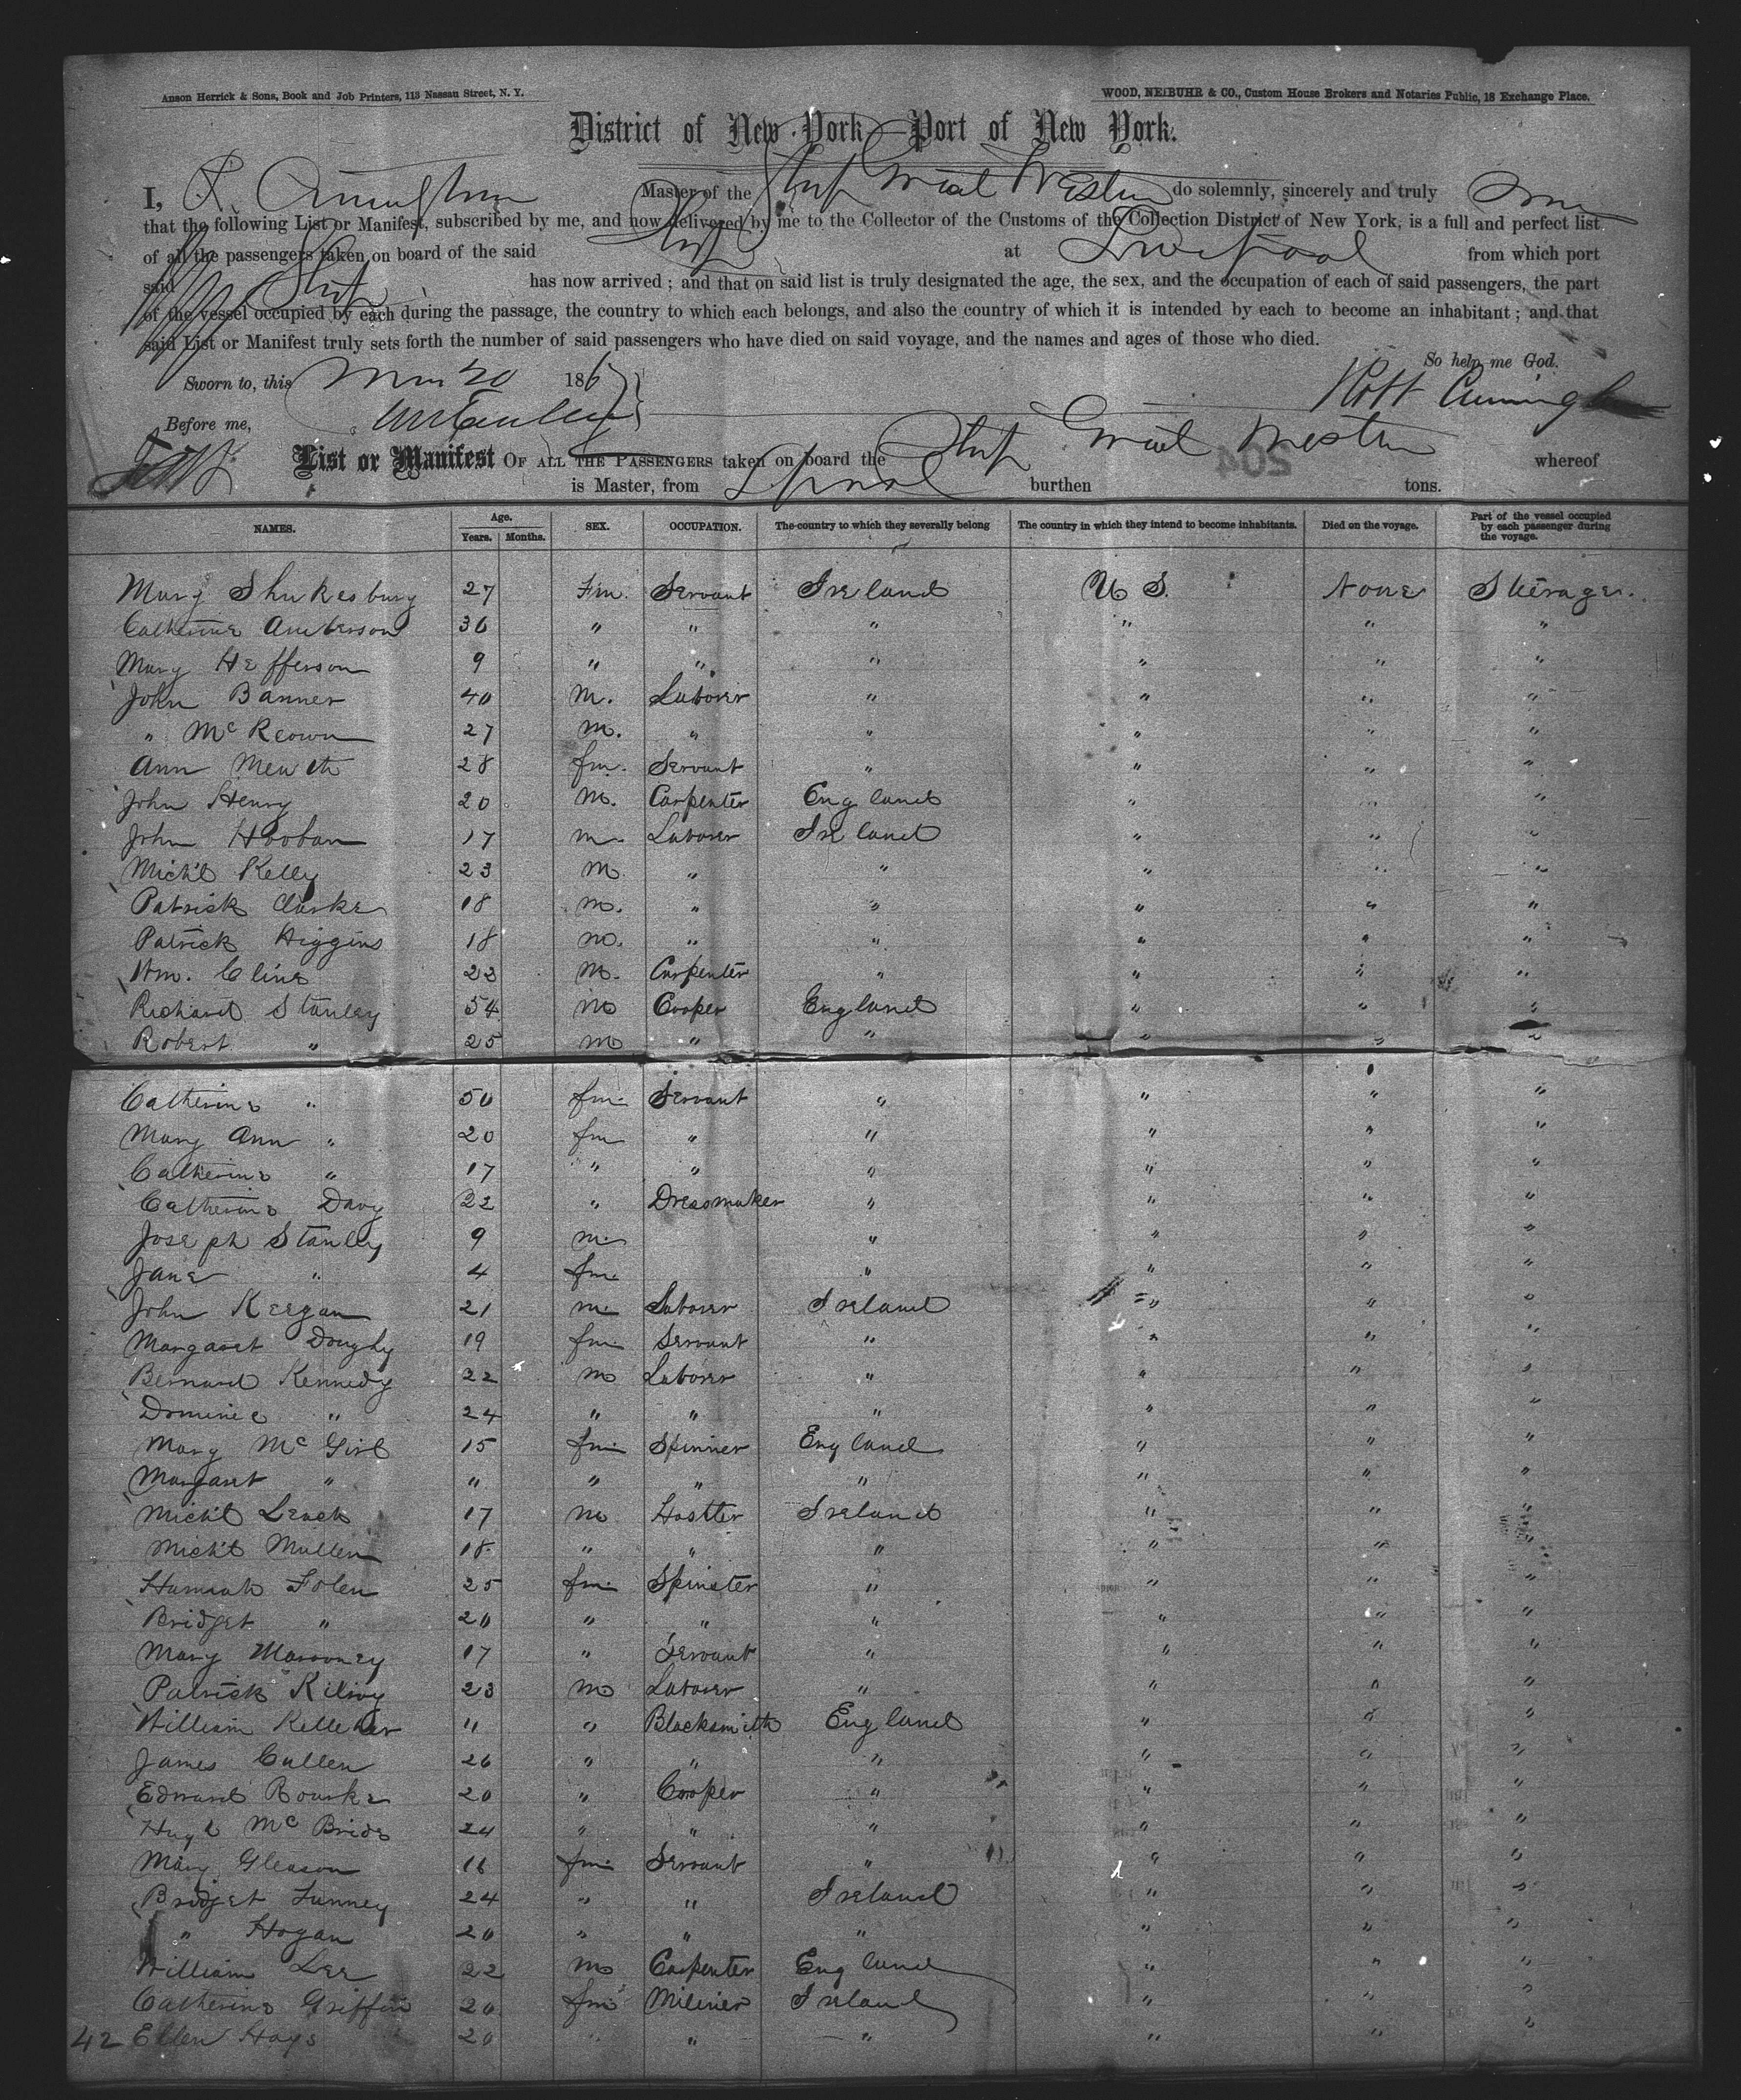 Anson Herrick & Sons, Book and Job Printers, 113 Nassau Street, N. Y. WOOD, NEIBUHR & CO., Custom House Brokers and Notaries Public, 18 Exchange Place.
District of New York—Port of New York.
I, Master of the Ship Great Western do solemnly, sincerely and truly
that the following List or Manifest, subscribed by me, and now delivered by me to the Collector of the Customs of the Collection District of New York, is a full and perfect list
of all the passengers taken on board of the said Ship at Liverpool from which port
said Ship has now arrived; and that on said list is truly designated the age, the sex, and the occupation of each of said passengers, the part
of the vessel occupied by each during the passage, the country to which each belongs, and also the country of which it is intended by each to become an inhabitant; and that
said List or Manifest truly sets forth the number of said passengers who have died on said voyage, and the names and ages of those who died.
So help me God.
Sworn to, this 20 186
Before me,
List or Manifest OF ALL THE PASSENGERS taken on board the Ship Great Western whereof
is Master, from Lpool burthen tons.
204
NAMES. Age. Years. Months. SEX. OCCUPATION. The country to which they severally belong The country in which they intend to become inhabitants. Died on the voyage. Part of the vessel occupied by each passenger during the voyage.
Mary Shukesburg 27 Fm. Servant Ireland U S. None Steerage.
Catherine Anderson 36 " " " " " "
Mary Hefferson 9 " " " " " "
John Banner 40 M. Laborer " " " "
" McKeown 27 M. " " " " "
Ann 28 fm. Servant " " " "
John Henry 20 M. Carpenter England " " "
John Hooban 17 m. Laborer Ireland " " "
Mich'l Kelly 23 M. " " " " "
Patrick Clarke 18 m. " " " " "
Patrick Higgins 18 m. " " " " "
Wm. Cline 23 M. Carpenter " " " "
Richard Stanley 54 m Cooper England " " "
Robert " 25 m " " " " "
Catherine " 50 fm. Servant " " " "
Mary Ann " 20 fm " " " " "
Catherine " 17 " " " " " "
Catherine Davy 22 " Dressmaker " " " "
Joseph Stanley 9 m. " " " "
Jane " 4 fm. " " " "
John Keegan 21 m. Laborer Ireland " " "
Margaret Doughy 19 fm. Servant " " " "
Bernard Kennedy 22 m Laborer " " " "
Dominic " 24 " " " " " "
Mary McGirl 15 fm. Spinner England " " "
Margaret " " " " " " " "
Mich'l Leack 17 m Hostler Ireland " " "
Mich'l Mullen 18 " " " " " "
Hannah Folen 25 fm. Spinster " " " "
Bridget " 20 " " " " " "
Mary Marooney 17 " Servant " " " "
Patrick Kilroy 23 m Laborer " " " "
William Kelleher " " Blacksmith England " " "
James Cullen 26 " " " " " "
Edward Rourke 20 " Cooper " " " "
Hugh McBride 24 " " " " " "
Mary Gleason 16 fm. Servant " " " "
Bridget Funney 24 " " Ireland " " "
" Hogan 20 " " " " " "
William Lee 22 m Carpenter England " " "
Catherine Griffin 20 fm Miliner Ireland " " "
42 Ellen Hays 20 " " " " " "